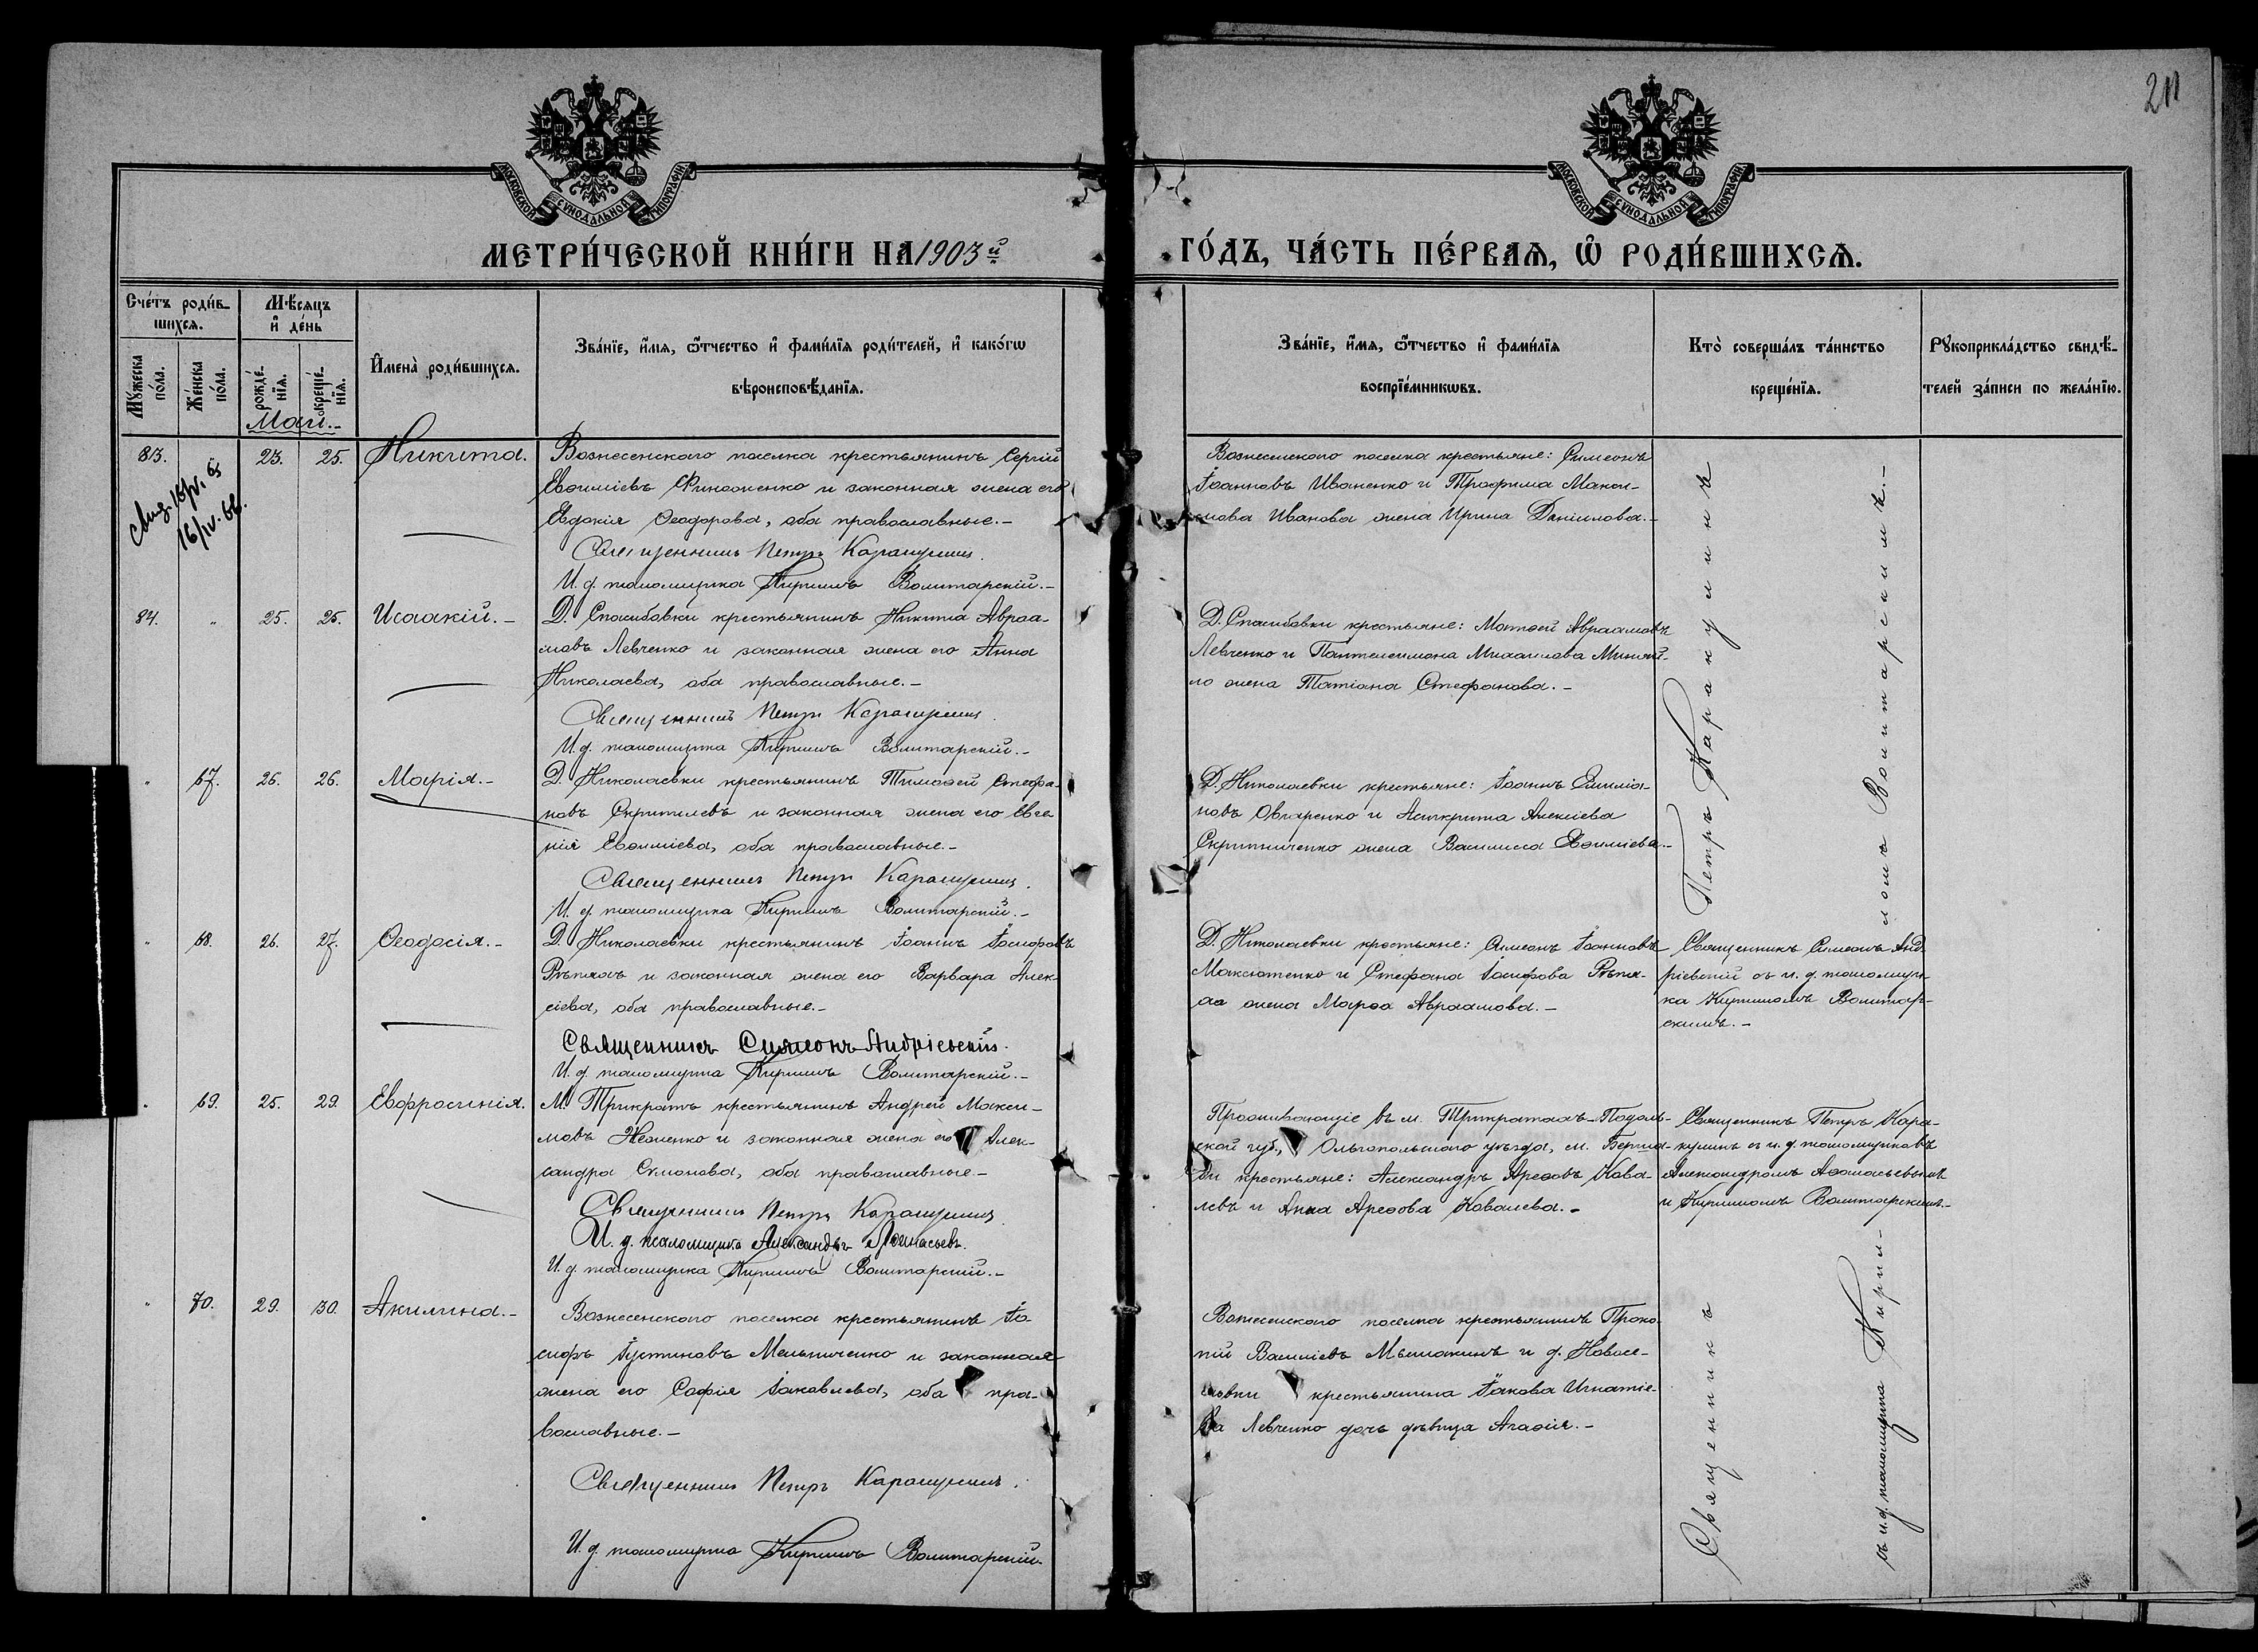 211
МОСКОВСКОЙ СѴНОДАЛЬНОЙ ТИПОГРАФІИ
МОСКОВСКОЙ СѴНОДАЛЬНОЙ ТИПОГРАФІИ
МЕТРИ́ЧЕСКОЙ КНИ́ГИ НА 1903й
ГО́ДЪ, ЧА́СТЬ ПЕ́РВАѦ, Ѽ РОДИ́ВШИХСѦ.
Сче́тъ роди́в-
шихсѧ.
Мꙋ́жеска по́ла.
Же́нска по́ла.
Мѣ́сѧцъ
и҆ де́нь
рожде́-
нїѧ.
креще́-
нїѧ.
И҆мена̀ роди́вшихсѧ.
Зва́нїе, и҆́мѧ, ѻ҆́тчество и҆ фами́лїѧ роди́телей, и҆ како́гѡ
вѣроисповѣ́данїѧ.
Зва́нїе, и҆́мѧ, ѻ҆́тчество и҆ фами́лїѧ
воспрїе́мникѡвъ.
Кто̀ соверша́лъ та́инство
креще́нїѧ.
Рꙋкоприкла́дство свидѣ́-
телей за́писи по жела́нїю.
Май.-
83. 23. 25. Никита.
Вознесенскаго поселка крестьянинъ Сергій
Евѳиміевъ и законная жена его
Евдокія Ѳеодорова, оба православные.-
Священникъ Петръ Каракулинъ.
И. д. псаломщика Кириллъ Волитарскій.-
Вознесенскаго поселка крестьяне: Симеонъ
Іоанновъ Иваненко и Трофима Макси-
мова Иванова жена Ирина Даніилова.-
Свид. 16/IV. 65
16/IV. 66.
84. " 25. 25. Исаакій.-
Д. Спасибовки крестьянинъ Никита Авраа-
мовъ Левченко и законная жена его Анна
Николаева, оба православные.-
Священникъ Петръ Каракулинъ.
И. д. псаломщика Кириллъ Волитарскій.-
Д. Спасибовки крестьяне: Матѳей Авраамовъ
Левченко и Пантелеимона Михаилова
жена Татіана Стефанова.-
" 67. 26. 26. Марія.-
Д. Николаевки крестьянинъ Тимоѳей Стефа-
новъ и законная жена его Евге
нія Евѳиміева, оба православные.-
Священникъ Петръ Каракулинъ.
И. д. псаломщика Кириллъ Волитарскій.-
Д. Николаевки крестьяне: Іоаннъ Емилiа-
новъ Овчаренко и Асигкрита Алексіева
Скрипниченко жена Василисса Евѳиміева.-
" 68. 26. 27. Ѳеодосія.-
Д. Николаевки крестьянинъ Іоаннъ Іосифовъ
Рѣпяхъ и законная жена его Варвара Алек-
сіева, оба православные.-
Священникъ Симеонъ Андріевскій.
И. д. псаломщика Кириллъ Волитарскій.-
Д. Николаевки крестьяне: Симеонъ Іоанновъ
Максютенко и Стефана Іосифова Рѣпя-
ха жена Марѳа Авраамова.-
Священникъ Симеонъ Анд-
ріевскій съ и. д. псаломщи-
ка Кирилломъ Волитар-
скимъ.-
" 69. 25. 29. Евфросинія.
М. Трикратъ крестьянинъ Андрей Макси-
мовъ и законная жена его Алек-
сандра Симонова, оба православные-
Священникъ Петръ Каракулинъ.
И. д. псаломщика Александръ Аѳанасьевъ.
И. д. псаломщика Кириллъ Волитарскій.-
Проживающіе въ м. Трикратахъ Подоль-
ской губ., Ольгопольскаго уѣзда, м. Берша-
ди крестьяне: Александръ Ареѳовъ Кова-
левъ и Анна Ареѳова Ковалева.-
Священникъ Петръ Кара-
кулинъ съ и. д. псаломщиковъ
Александромъ Аѳанасьевымъ
и Кирилломъ Волитарскимъ.-
" 70. 29. 30. Акилина.-
Вознесенскаго поселка крестьянинъ Іо-
сифъ Іустиновъ Мельниченко и законная
жена его Софія Іаковлева, оба пра-
вославные.-
Священникъ Петръ Каракулинъ.
И. д. псаломщика Кириллъ Волитарскій.
Вознесенскаго поселка крестьянинъ Проко-
пій Василіевъ Мышакинъ и д. Новосе-
ловки крестьянина Іакова Игнатіе-
ва Левченко дочь дѣвица Агаѳія.-
Священникъ Петръ Каракулинъ
съ и. д. псаломщика Кирил-
ломъ Волитарскимъ.-